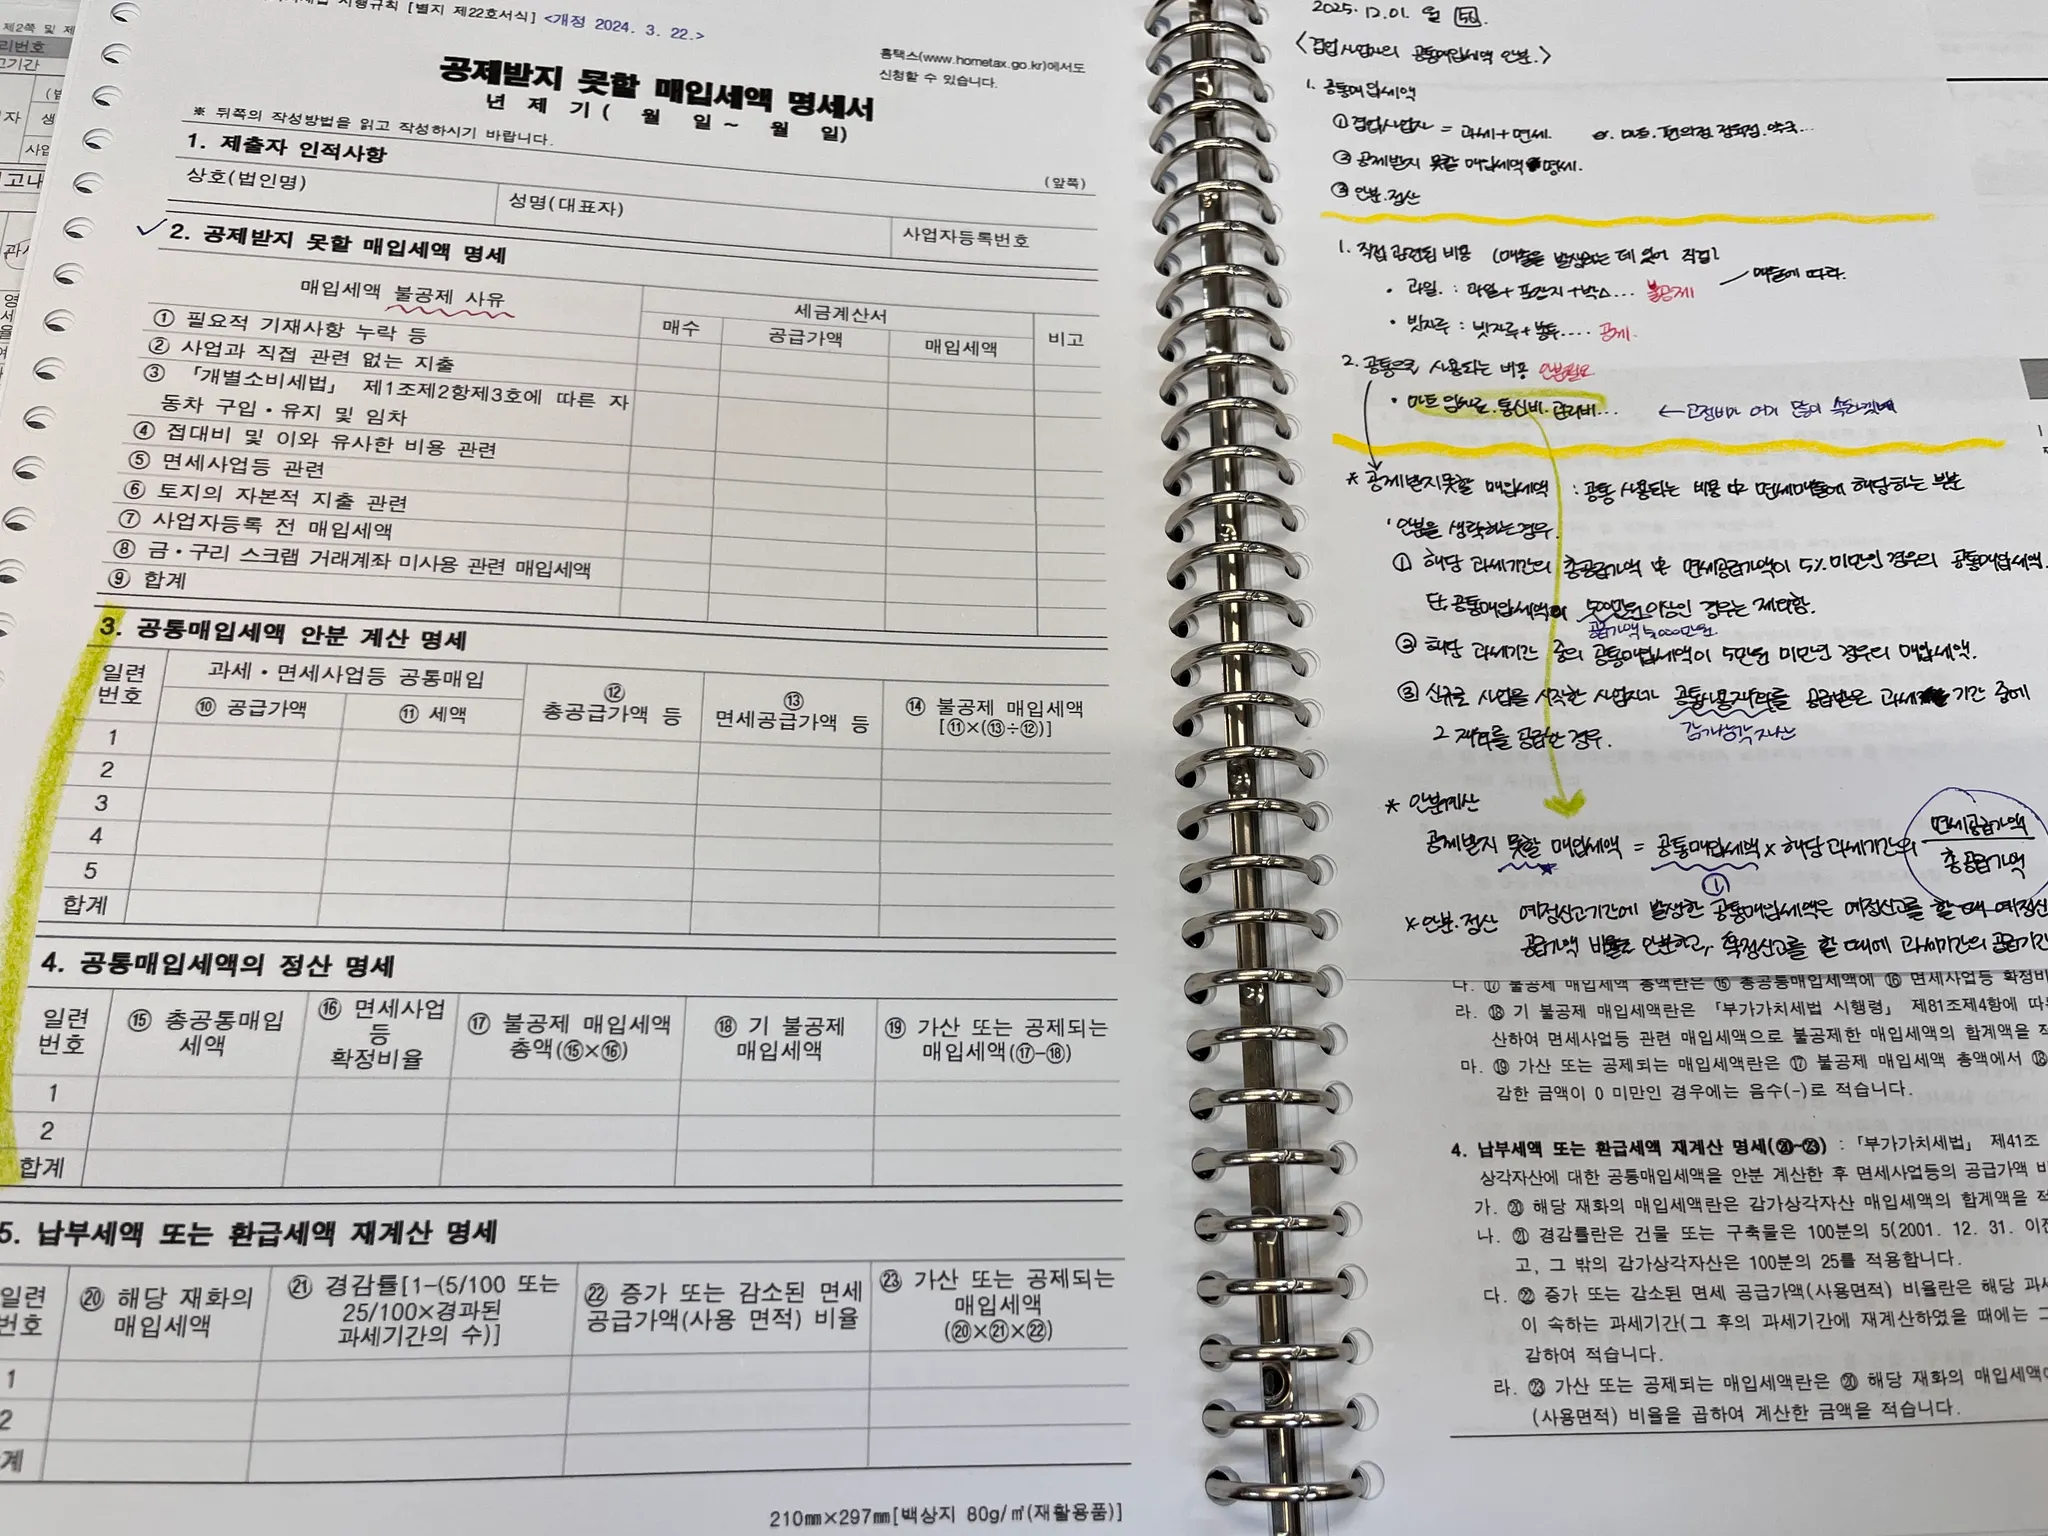 시행규칙 [별지 제22호서식] <개정 2024. 3. 22.>
홈택스(www.hometax.go.kr)에서도
신청할 수 있습니다.
공제받지 못할 매입세액 명세서
년 제 기 ( 월 일 ~ 월 일)
※ 뒤쪽의 작성방법을 읽고 작성하시기 바랍니다.
(앞쪽)
1. 제출자 인적사항
상호(법인명) 성명(대표자) 사업자등록번호
2. 공제받지 못할 매입세액 명세
매입세액 불공제 사유 세금계산서 비고
매수 공급가액 매입세액
① 필요적 기재사항 누락 등
② 사업과 직접 관련 없는 지출
③ 「개별소비세법」 제1조제2항제3호에 따른 자
동차 구입ㆍ유지 및 임차
④ 접대비 및 이와 유사한 비용 관련
⑤ 면세사업등 관련
⑥ 토지의 자본적 지출 관련
⑦ 사업자등록 전 매입세액
⑧ 금ㆍ구리 스크랩 거래계좌 미사용 관련 매입세액
⑨ 합계
3. 공통매입세액 안분 계산 명세
일련
번호
과세ㆍ면세사업등 공통매입
⑩ 공급가액 ⑪ 세액
⑫
총공급가액 등
⑬
면세공급가액 등
⑭ 불공제 매입세액
[⑪×(⑬÷⑫)]
1
2
3
4
5
합계
4. 공통매입세액의 정산 명세
일련
번호
⑮ 총공통매입
세액
⑯ 면세사업
등
확정비율
⑰ 불공제 매입세액
총액(⑮×⑯)
⑱ 기 불공제
매입세액
⑲ 가산 또는 공제되는
매입세액(⑰-⑱)
1
2
합계
5. 납부세액 또는 환급세액 재계산 명세
일련
번호
⑳ 해당 재화의
매입세액
㉑ 경감률[1-(5/100 또는
25/100×경과된
과세기간의 수)]
㉒ 증가 또는 감소된 면세
공급가액(사용 면적) 비율
㉓ 가산 또는 공제되는
매입세액
(⑳×㉑×㉒)
1
2
계
210㎜×297㎜[백상지 80g/㎡(재활용품)]
2025. 12. 01. 월
<겸업사업자의 공통매입세액 안분.>
1. 공통매입세액
① 겸업사업자 = 과세+면세. 마트. 편의점 정육점. 약국...
② 공제받지 못할 매입세액 명세.
③ 안분. 정산
1. 직접 관련된 비용 (매출을 발생하는 데 있어 직접)
• 과일 : 과일+포장지+박스... 불공제 매출에 따라.
• 빗자루 : 빗자루+봉투.... 공제.
2. 공통으로 사용되는 비용 안분필요
• 마트 임차료. 통신비. 관리비... ← 고정비가 여기 많이 속하겠네
* 공제받지못할 매입세액 : 공통 사용되는 비용 中 면세매출에 해당하는 부분
' 안분을 생략하는경우.
① 해당 과세기간의 총공급가액 中 면세공급가액이 5% 미만인 경우의 공통매입세액.
단, 공통매입세액이 500만원 이상인 경우는 제외함.
공급가액 5,000만원
② 해당 과세기간 중의 공통매입세액이 5만원 미만인 경우의 매입세액.
③ 신규로 사업을 시작한 사업자가 공통사용재화를 공급받은 과세 기간 중에
그 재화를 공급한 경우. 감가상각자산
* 안분계산
공제받지 못할 매입세액 = 공통매입세액 × 해당과세기간의 면세공급가액
총공급가액
①
* 안분. 정산 예정신고기간에 발생한 공통매입세액은 예정신고를 할 때 예정신
공급가액 비율로 안분하고, 확정신고를 할 때에 과세기간의 공급
다. ⑰ 불공제 매입세액 총액란은 ⑮ 총공통매입세액에 ⑯ 면세사업등 확정비
라. ⑱ 기 불공제 매입세액란은 「부가가치세법 시행령」 제81조제4항에 따
산하여 면세사업등 관련 매입세액으로 불공제한 매입세액의 합계액을 적
마. ⑲ 가산 또는 공제되는 매입세액란은 ⑰ 불공제 매입세액 총액에서 ⑱
감한 금액이 0 미만인 경우에는 음수(-)로 적습니다.
4. 납부세액 또는 환급세액 재계산 명세(⑳~㉓) : 「부가가치세법」 제41조
상각자산에 대한 공통매입세액을 안분 계산한 후 면세사업등의 공급가액 비
가. ⑳ 해당 재화의 매입세액란은 감가상각자산 매입세액의 합계액을 적
나. ㉑ 경감률란은 건물 또는 구축물은 100분의 5(2001. 12. 31. 이전
고, 그 밖의 감가상각자산은 100분의 25를 적용합니다.
다. ㉒ 증가 또는 감소된 면세 공급가액(사용면적) 비율란은 해당 과세
이 속하는 과세기간(그 후의 과세기간에 재계산하였을 때에는 그
감하여 적습니다.
라. ㉓ 가산 또는 공제되는 매입세액란은 ⑳ 해당 재화의 매입세액에
(사용면적) 비율을 곱하여 계산한 금액을 적습니다.